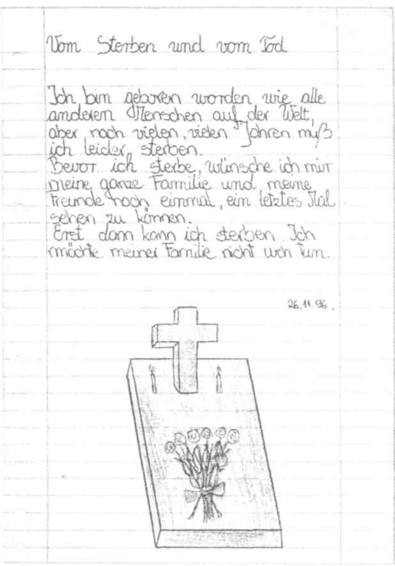 Vom Sterben und vom Tod
Ich bin geboren worden wie alle
anderen Menschen auf der Welt,
aber nach vielen, vielen Jahren muß
ich leider, sterben.
Bevor ich sterbe, wünsche ich mir
meine ganze Familie und meine
Freunde noch einmal, ein letztes Mal
sehen zu können.
Erst dann kann ich sterben. Ich
möchte meiner Familie nicht weh tun.
26.11.96.